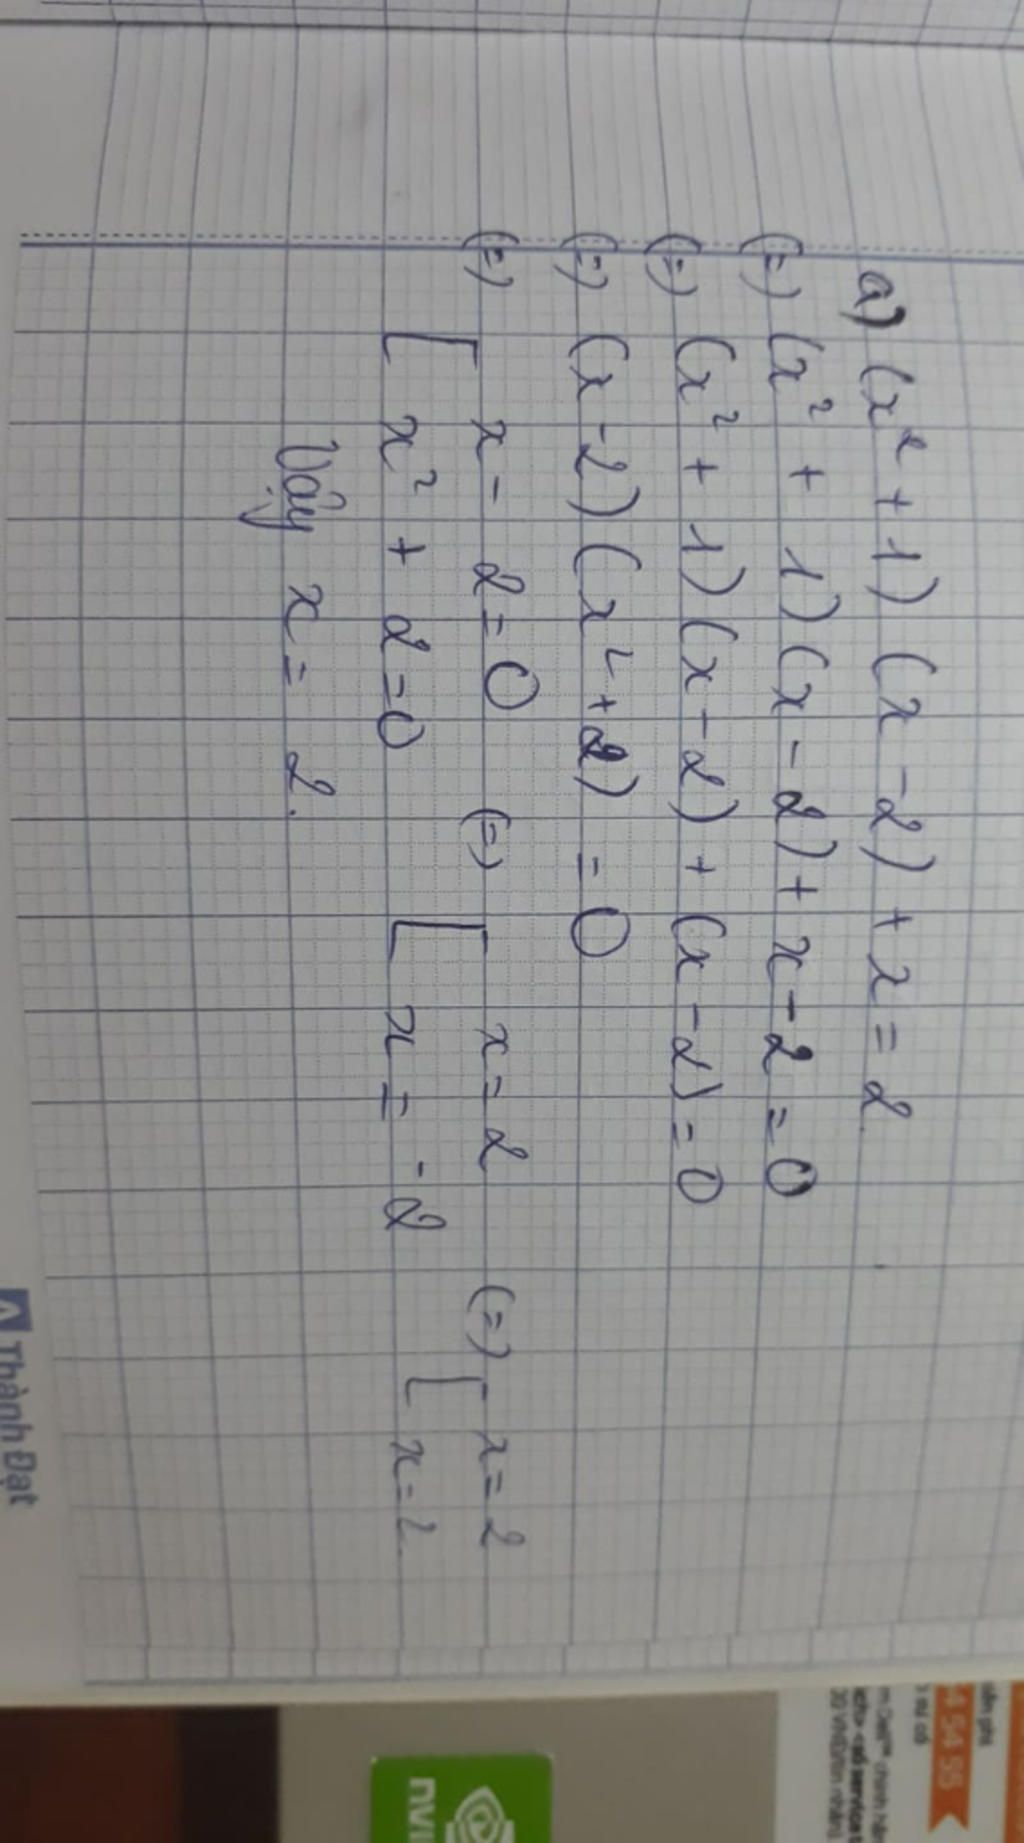 a) (x² + 1) (x - 2) + x = 2
(=) (x² + 1) (x - 2) + x - 2 = 0
(=) (x² + 1) (x - 2) + (x - 2) = 0
(=) (x - 2) (x² + 2) = 0
(=) [ x - 2 = 0 (=) [ x = 2 (=) [ x = 2
x² + 2 = 0 x = -2 x = 2
Vậy x = 2.
Thành Đạt
4 54 55